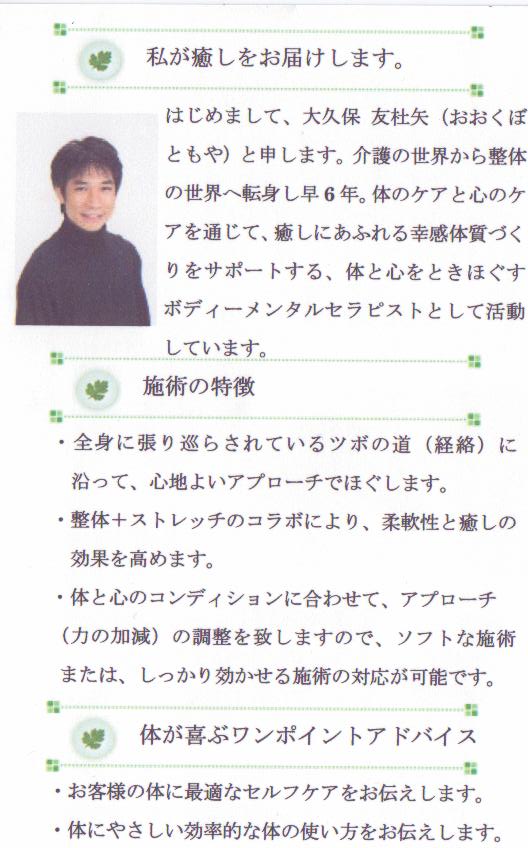 私が癒しをお届けします。
はじめまして、大久保 友杜矢（おおくぼ
ともや）と申します。介護の世界から整体
の世界へ転身し早6年。体のケアと心のケ
アを通じて、癒しにあふれる幸感体質づく
りをサポートする、体と心をときほぐす
ボディーメンタルセラピストとして活動
しています。
施術の特徴
・全身に張り巡らされているツボの道（経絡）に
沿って、心地よいアプローチでほぐします。
・整体＋ストレッチのコラボにより、柔軟性と癒しの
効果を高めます。
・体と心のコンディションに合わせて、アプローチ
（力の加減）の調整を致しますので、ソフトな施術
または、しっかり効かせる施術の対応が可能です。
体が喜ぶワンポイントアドバイス
・お客様の体に最適なセルフケアをお伝えします。
・体にやさしい効率的な体の使い方をお伝えします。